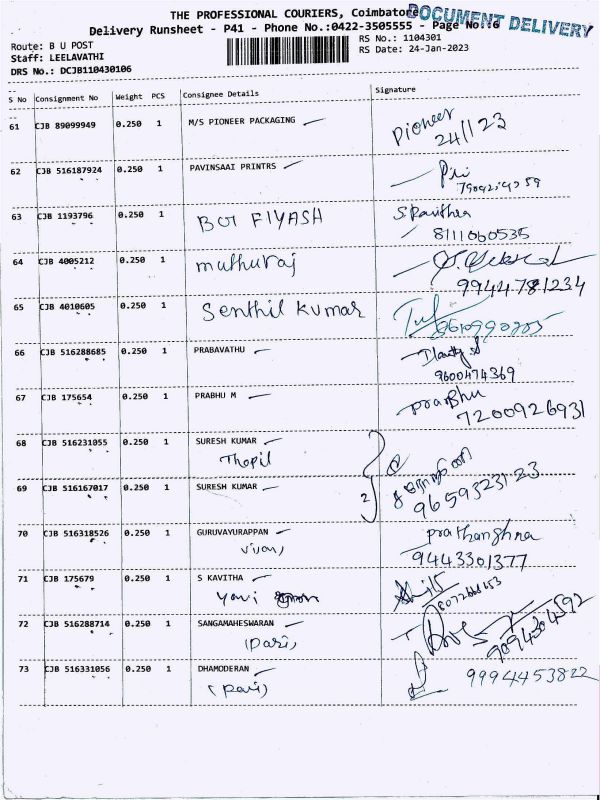 THE PROFESSIONAL COURIERS, Coimbatore
DOCUMENT DELIVERY
Delivery Runsheet - P41 - Phone No.:0422-3505555 - Page No.:6
Route: B U POST
RS No.: 1104301
Staff: LEELAVATHI
RS Date: 24-Jan-2023
DRS No.: DCJB110430106
S No Consignment No Weight PCS Consignee Details Signature
61 CJB 89099949 0.250 1 M/S PIONEER PACKAGING Pioneer
24/1/23
62 CJB 516187924 0.250 1 PAVINSAAI PRINTRS
63 CJB 1193796 0.250 1 BOT FIYASH
8111060535
64 CJB 4005212 0.250 1 muthuraj
9944781234
65 CJB 4010605 0.250 1 Senthil kumar
66 CJB 516288685 0.250 1 PRABAVATHU
9600474369
67 CJB 175654 0.250 1 PRABHU M Prabhu
7200926931
68 CJB 516231055 0.250 1 SURESH KUMAR
Thopil
69 CJB 516167017 0.250 1 SURESH KUMAR 2
9659323123
70 CJB 516318526 0.250 1 GURUVAYURAPPAN
9443301377
71 CJB 175679 0.250 1 S KAVITHA
72 CJB 516288714 0.250 1 SANGAMAHESWARAN
(Pari)
9094304592
73 CJB 516331056 0.250 1 DHAMODERAN
(Pari)
9994453822